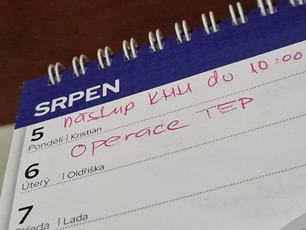 SRPEN
5 nástup KHH do 10:00
Pondělí | Kristián
6 operace TEP
Úterý | Oldřiška
7
Středa | Lada